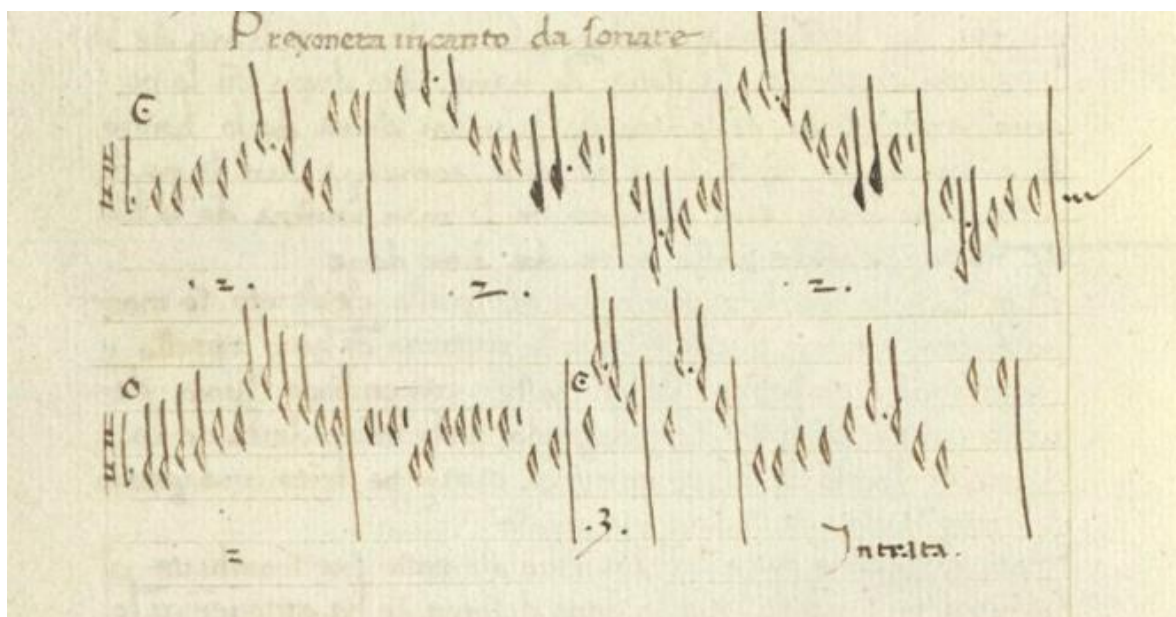 Prexoneza in canto da sonare
.2. .2. .2.
2 .3. Intrata.